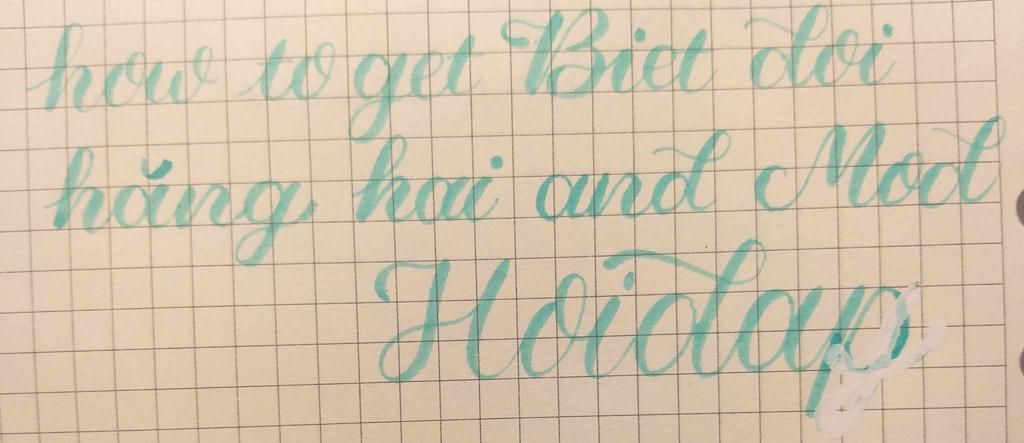 how to get Biet doi
hăng hai and Mod
Hoidap